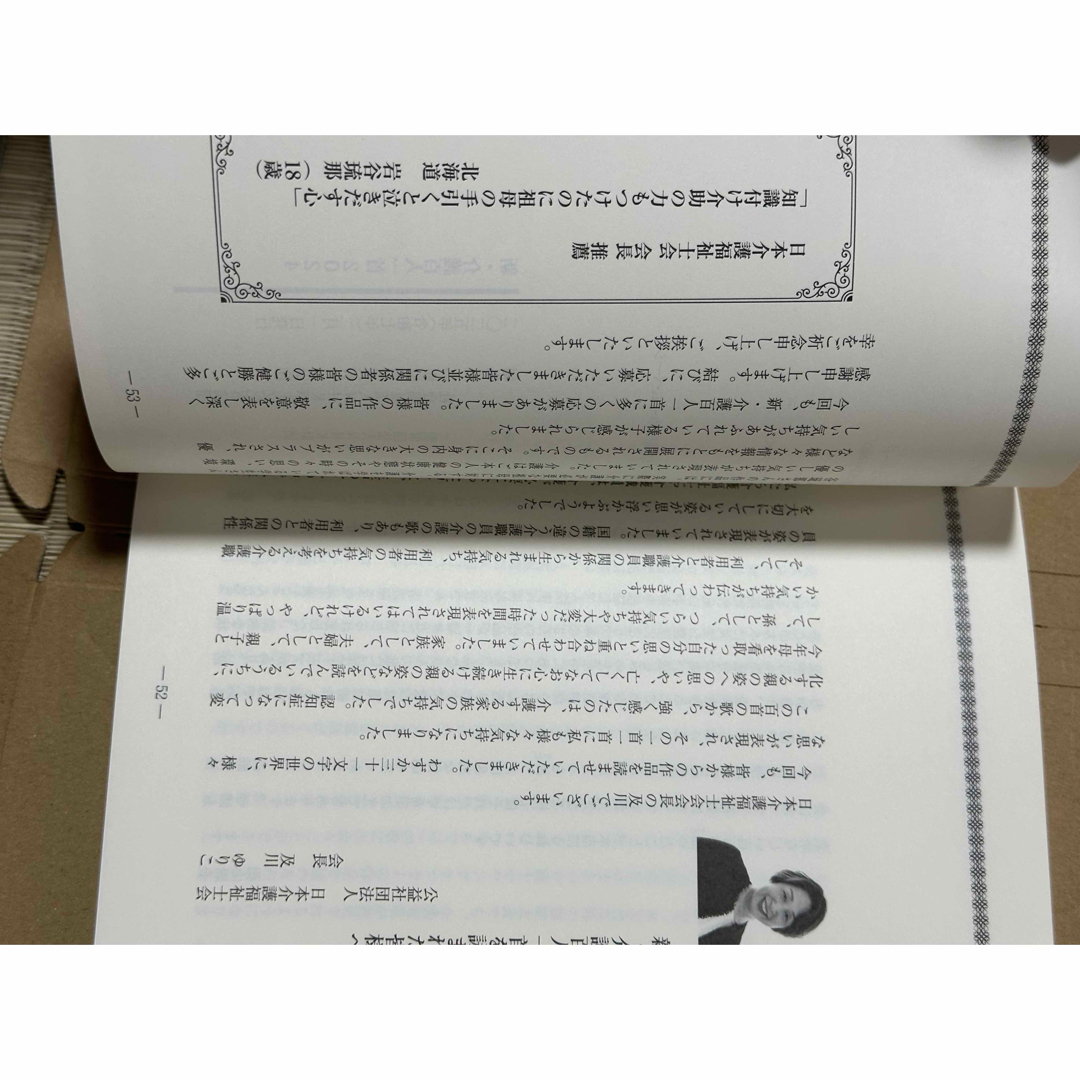 公益社団法人　日本介護福祉士会
会長　及川　ゆりこ
日本介護福祉士会会長の及川でございます。
今回も、皆様からの作品を読ませていただきました。わずか三十一文字の世界に、様々
な思いが表現され、その一首一首に私も様々な気持ちになりました。
この百首の歌から、強く感じたのは、介護する家族の気持ちでした。認知症になって変
化する親の姿への思いや、亡くしてなお心に生き続ける親の姿などを読んでいるうちに、
今年母を看取った自分の思いと重ね合わせていました。家族として、夫婦として、親子と
して、孫として、つらい気持ちや大変だった時間を表現されてはいるけれど、やっぱり温
かい気持ちが伝わってきます。
そして、利用者と介護職員の関係から生まれる気持ち、利用者の気持ちを考える介護職
員の姿が表現されていました。国籍の違う介護職員の歌もあり、利用者との関係性
を大切にしている姿が思い浮かぶようでした。
― 52 ―
の優しい気持ちが表現されていました。介護はご本人の
など様々な情報をもとに展開されるものです。そこに身内の大きな思いがプラスされ、優
しい気持ちがあふれている様子が感じられました。
今回も、新・介護百人一首に多くの応募がありました。皆様の作品に、敬意を表し深く
感謝申し上げます。結びに、応募いただきました皆様並びに関係者の皆様のご健勝とご多
幸をご祈念申し上げ、ご挨拶といたします。
日本介護福祉士会会長 推薦
「知識付け介助の力もつけたのに祖母の手引くと泣きだす心」
北海道　岩谷琉那（18歳）
― 53 ―